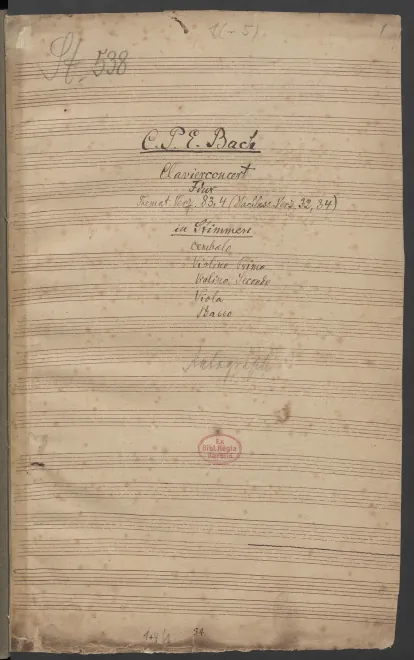 1(-5)
1
St. 538
C. P. E. Bach
Clavierconcert
F dur
Themat. Verz. 83,4 (Nachlass. Verz. 32, 34)
in Stimmen
Cembalo
Violino Primo
Violino Secondo
Viola
Basso
Autograph
Ex
Bibl. Regia
Berolin.
34.